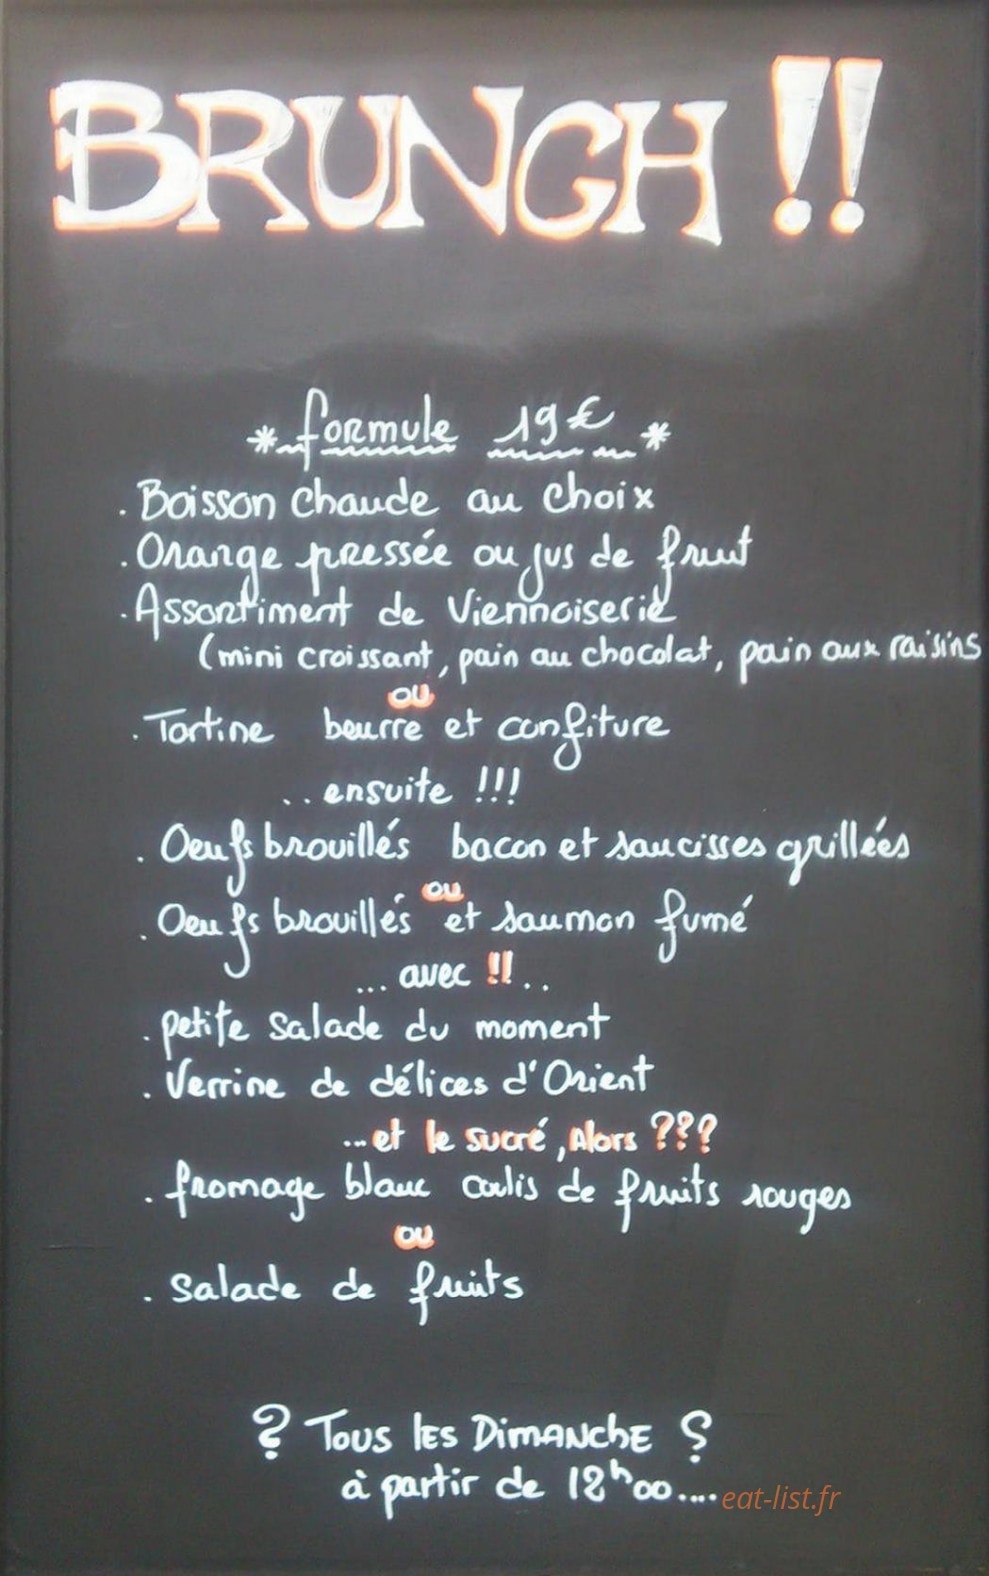 BRUNCH !!
* formule 19€ *
. Boisson chaude au choix
. Orange pressée ou jus de fruit
. Assortiment de Viennoiserie
(mini croissant, pain au chocolat, pain aux raisins
ou
. Tartine beurre et confiture
.. ensuite !!!
. Oeufs brouillés bacon et saucisses grillées
ou
. Oeufs brouillés et saumon fumé
... avec !! ..
. petite salade du moment
. Verrine de délices d'Orient
... et le sucré, Alors ???
. fromage blanc coulis de fruits rouges
ou
. salade de fruits
? Tous les Dimanche ?
à partir de 12h00....
eat-list.fr